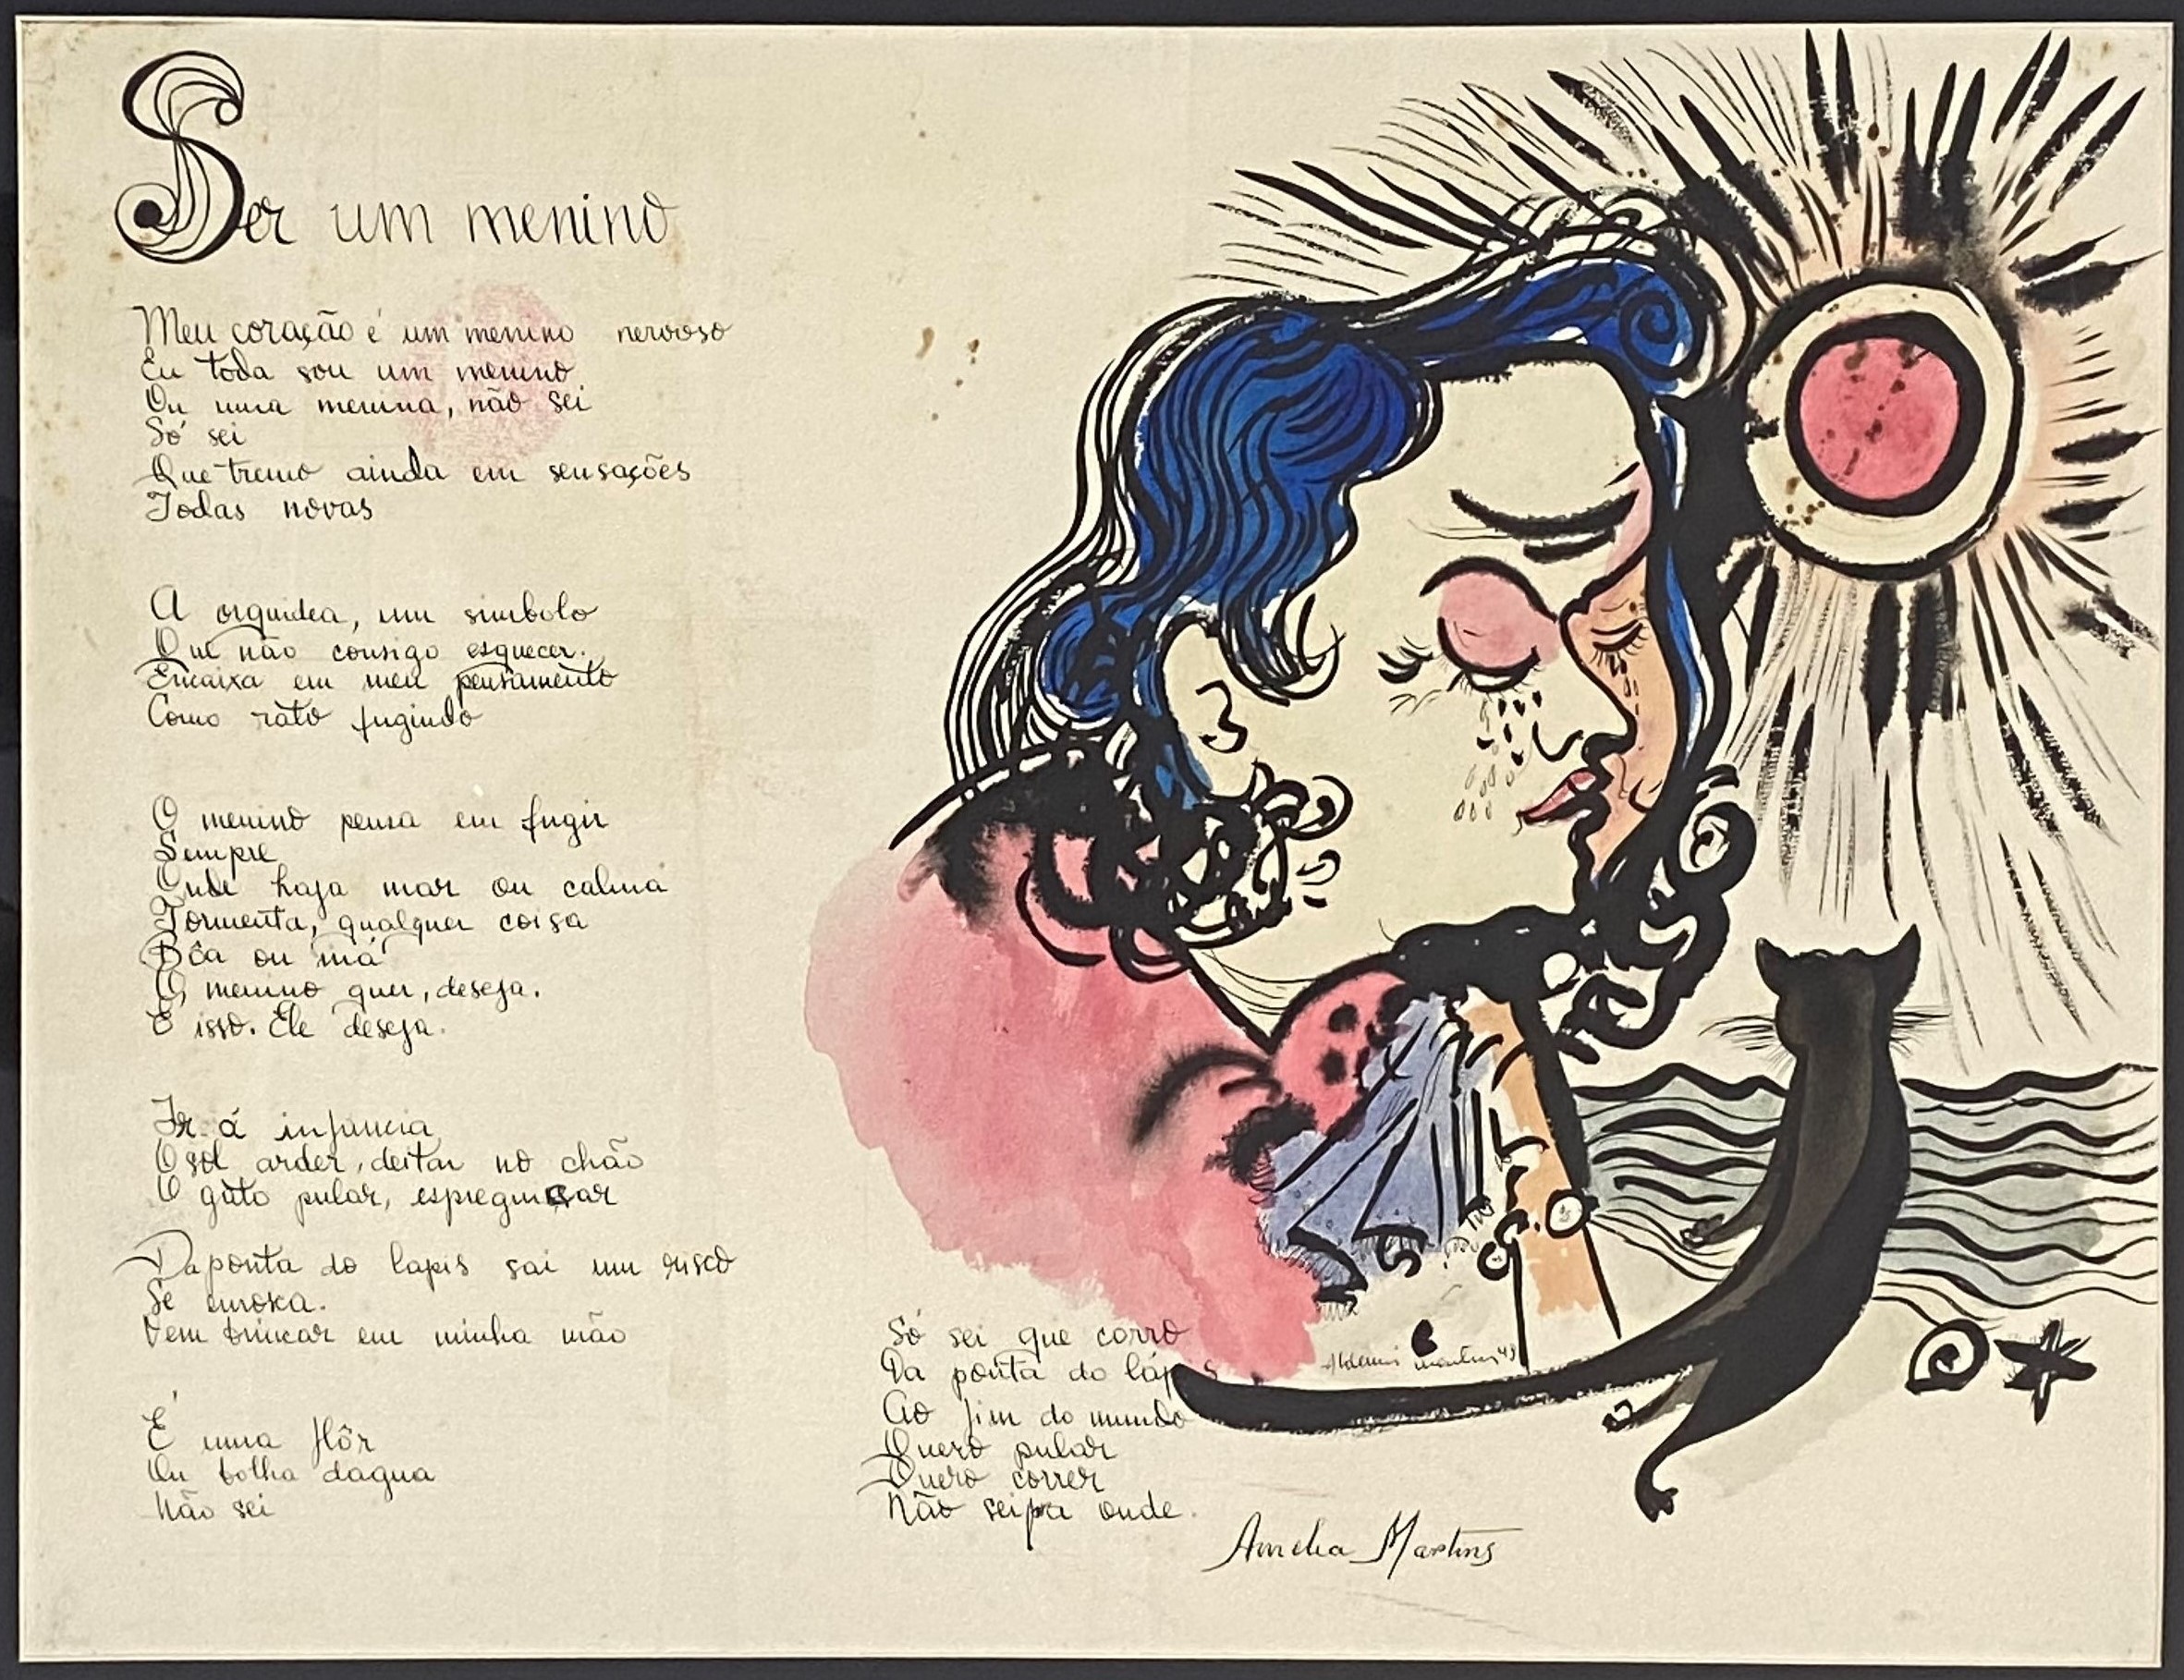 Ser um menino
Meu coração é um menino nervoso
Eu toda sou um menino
Ou uma menina, não sei
Só sei
Que tremo ainda em sensações
Todas novas
A orquidea, um simbolo
Que não consigo esquecer.
Encaixa em meu pensamento
Como rato fugindo
O menino pensa em fugir
Sempre
Onde haja mar ou calma
Tormenta, qualquer coisa
Bôa ou má
O menino quer, deseja.
É isso. Ele deseja.
Ir á infancia
O sol arder, deitar no chão
O gato pular, espreguiçar
Da ponta do lapis sai um risco
Se enrosca.
Vem brincar em minha mão
É uma flôr
Ou bolha dagua
Não sei
Só sei que corro
Da ponta do lápis
Ao fim do mundo
Quero pular
Quero correr
Não sei pra onde.
Aldemir Martins
Amelia Martins